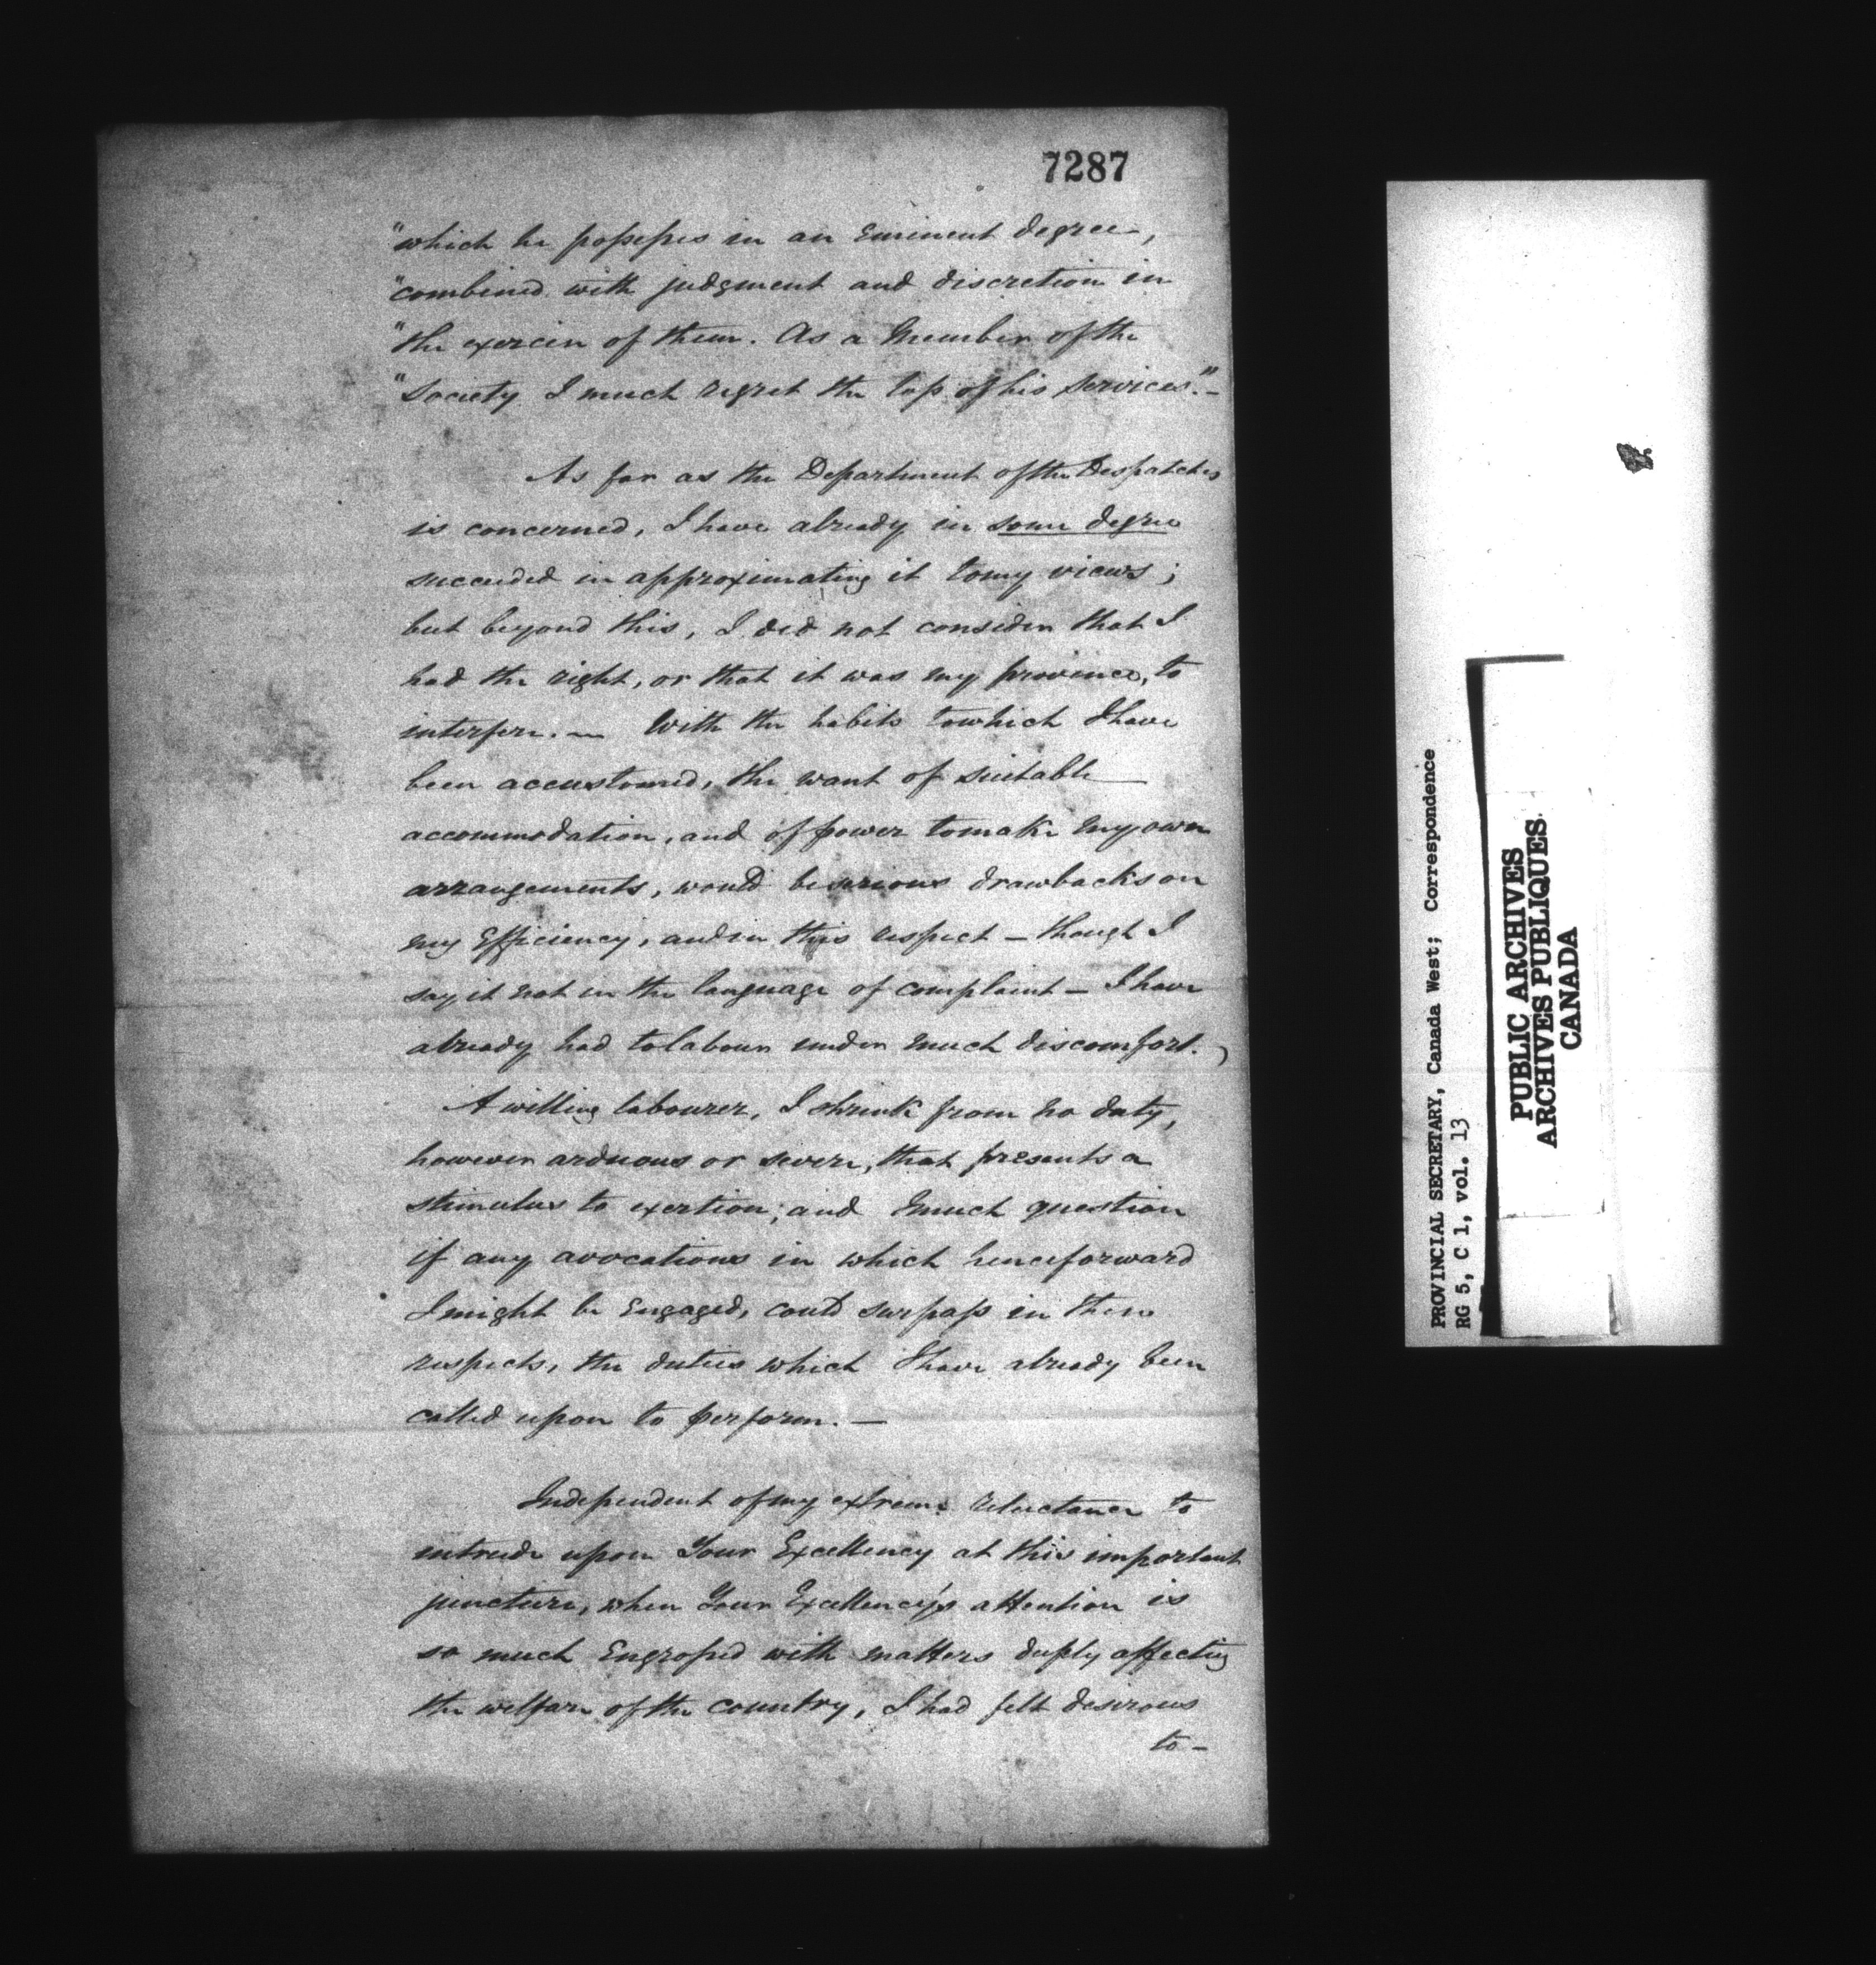 7287
"which he possesses in an eminent degree,
"combined with judgment and discretion in
"the exercise of them. As a Member of the
"Society I much regret the loss of his services."–
As far as the Department of the Despatches
is concerned, I have already in some degree
succeeded in approximating it to my views;
but beyond this, I did not consider that I
had the right, or that it was my province, to
interfere. — With the habits to which I have
been accustomed, the want of suitable
accommodation, and of power to make my own
arrangements, would be serious drawbacks on
my Efficiency, and in this respect – though I
say it not in the language of complaint – I have
already had to labour under much discomfort.
A willing labourer, I shrink from no duty,
however arduous or severe, that presents a
stimulus to exertion; and I much question
if any avocations in which henceforward
I might be Engaged, could surpass in these
respects, the duties which I have already been
called upon to perform. —
Independent of my extreme reluctance to
intrude upon Your Excellency at this important
juncture, when Your Excellency's attention is
so much Engrossed with matters deeply affecting
the welfare of the country, I had felt desirous
to –
PROVINCIAL SECRETARY, Canada West; Correspondence
RG 5, C 1, vol. 13
PUBLIC ARCHIVES
ARCHIVES PUBLIQUES
CANADA